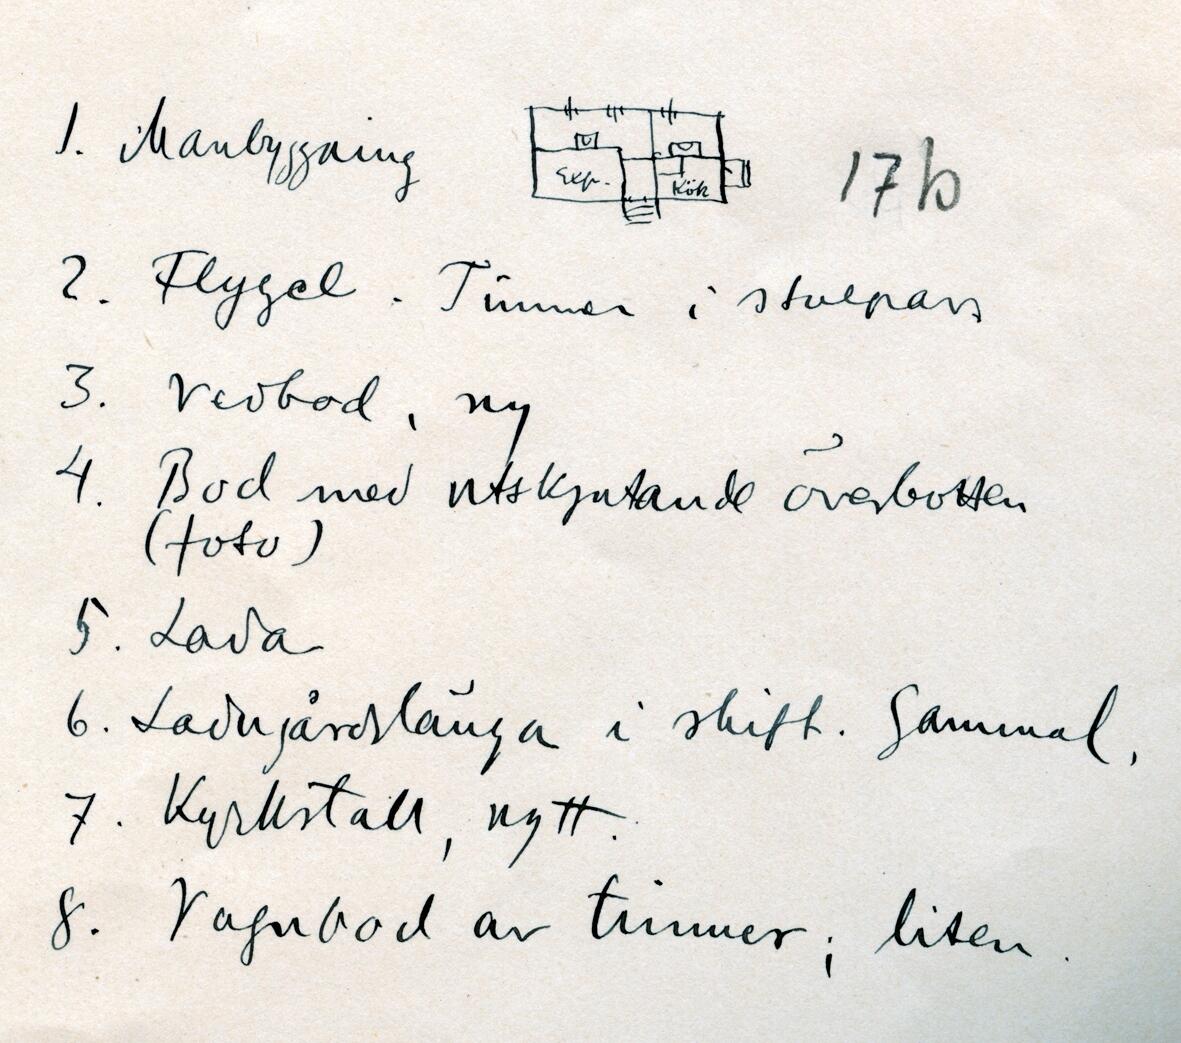 1. Manbyggning
Exp.
Kök
17b
2. Flygel. Timmer i stolpar
3. Vedbod, ny
4. Bod med utskjutande överbotten
(foto)
5. Lada
6. Ladugårdslänga i skift. Gammal.
7. Kyrkstall, nytt.
8. Vagnbod av timmer; liten.